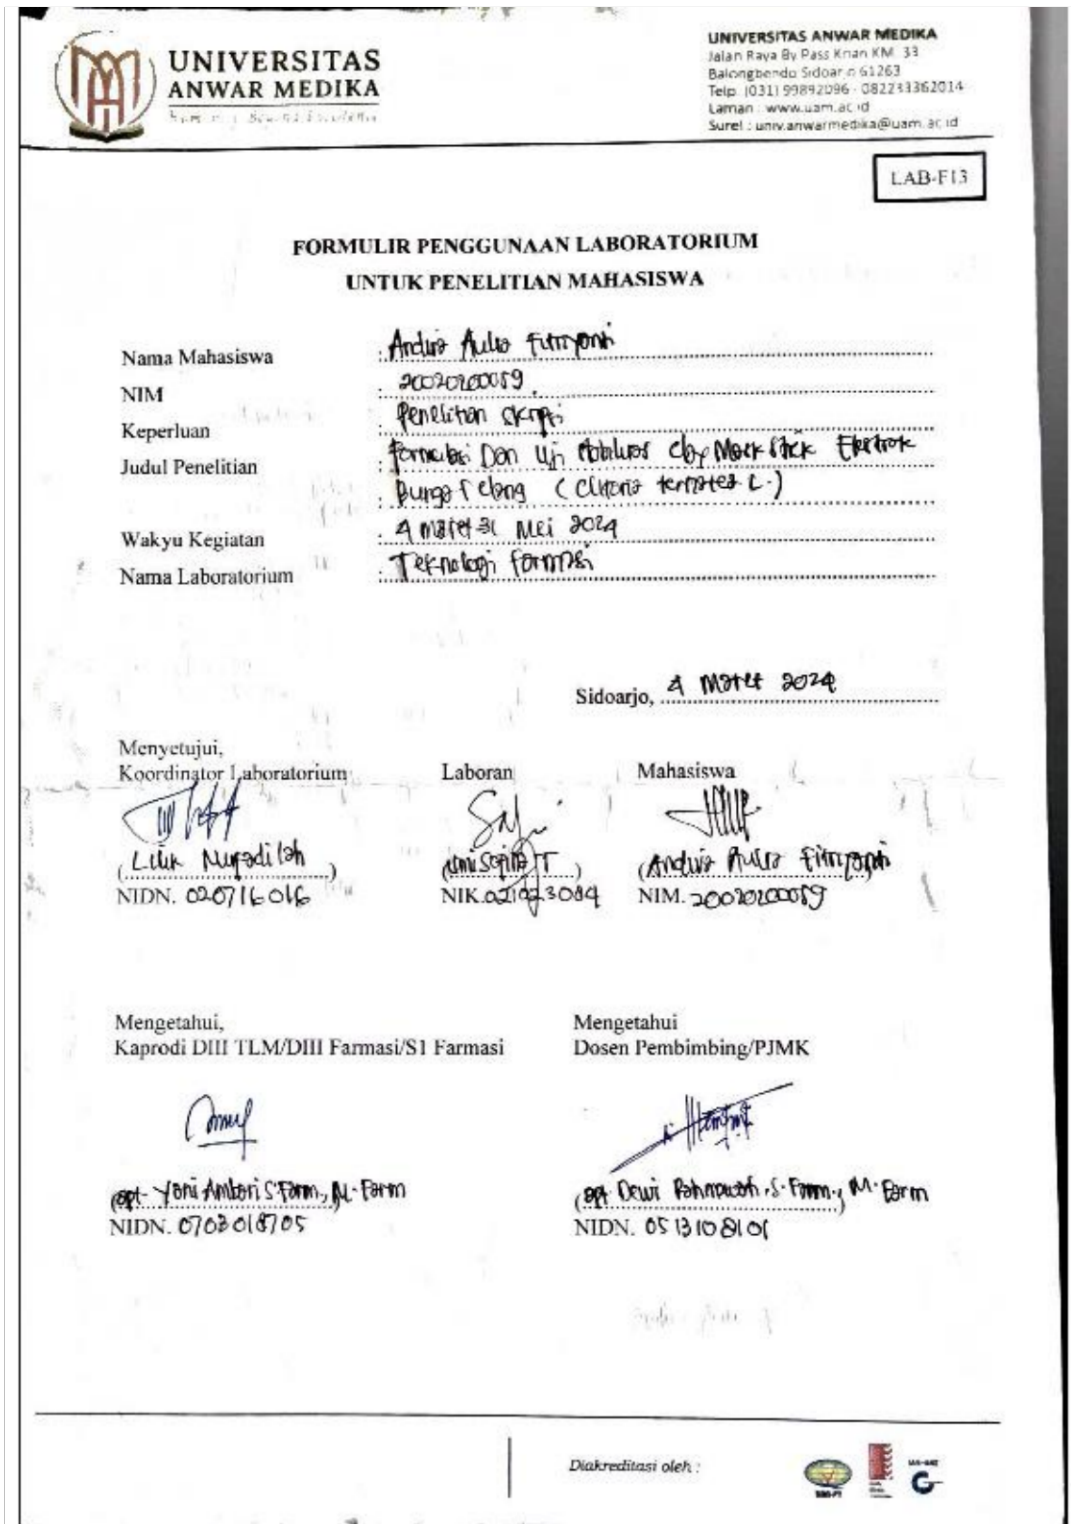 UNIVERSITAS
ANWAR MEDIKA
UNIVERSITAS ANWAR MEDIKA
Jalan Raya By Pass Krian KM. 33
Balongbendo Sidoarjo 61263
Telp. (031) 99892096 - 082233362014
Laman : www.uam.ac.id
Surel : univ.anwarmedika@uam.ac.id
LAB-F13
FORMULIR PENGGUNAAN LABORATORIUM
UNTUK PENELITIAN MAHASISWA
Nama Mahasiswa : Andira Aulia Fitriyani
NIM : 20020200059
Keperluan : Penelitian Skripsi
Judul Penelitian : Formulasi Dan Uji Stabilitas Clay Mask Stick Ekstrak
Bunga Telang (Clitoria ternatea L.)
Wakyu Kegiatan : 4 Maret-31 Mei 2024
Nama Laboratorium : Teknologi Farmasi
Sidoarjo, 4 Maret 2024
Menyetujui,
Koordinator Laboratorium Laboran Mahasiswa
(Lilik Nurfadilah) (T) (Andira Aulia Fitriyani)
NIDN. 020716016 NIK. 021023084 NIM. 20020200059
Mengetahui, Mengetahui
Kaprodi DIII TLM/DIII Farmasi/S1 Farmasi Dosen Pembimbing/PJMK
(apt. Yani Ambari S.Farm., M.Farm) (apt. Dewi Rahmawati, S.Farm., M.Farm)
NIDN. 0703018705 NIDN. 0513108101
Diakreditasi oleh :